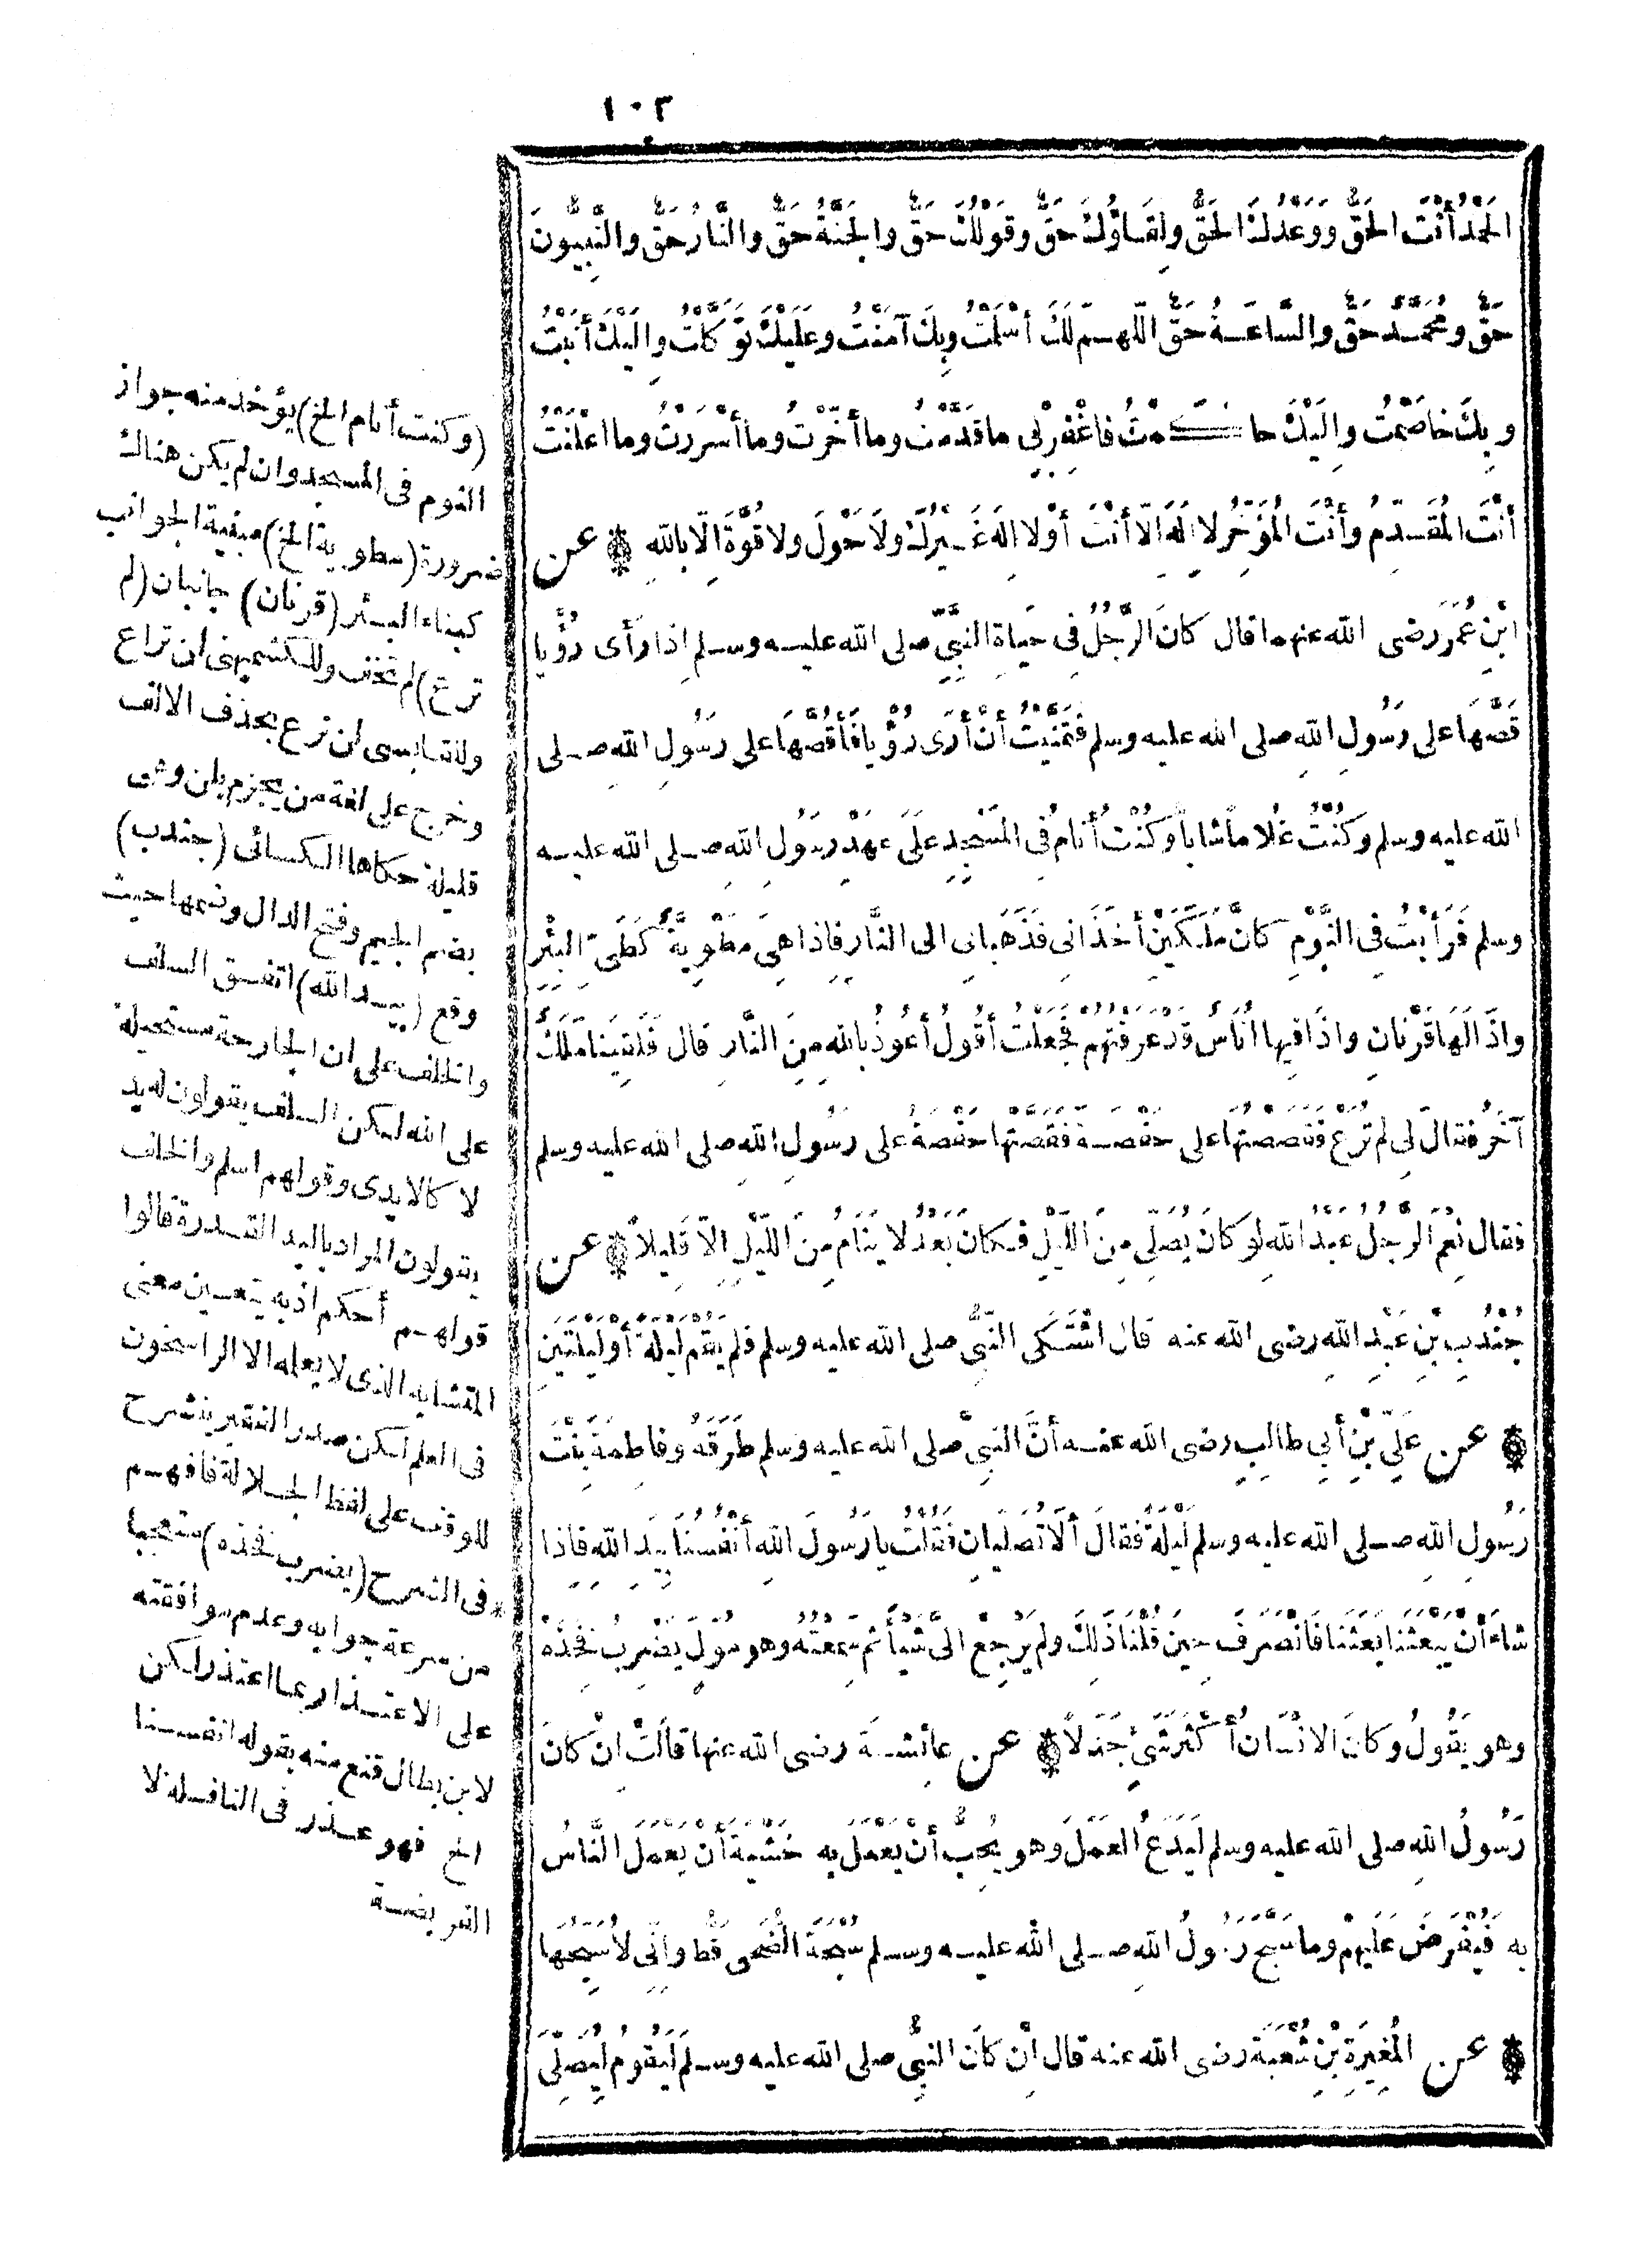 ١٠٣
الحَمْدُ أَنْتَ الحَقُّ وَوَعْدُكَ الحَقُّ ولِقَاؤُكَ حَقٌّ وقَوْلُكَ حَقٌّ والجَنَّةُ حَقٌّ والنَّارُ حَقٌّ والنَّبِيُّونَ
حَقٌّ ومُحَمَّدٌ حَقٌّ والسَّاعَةُ حَقٌّ اللّهمّ لَكَ أَسْلَمْتُ وبِكَ آمَنْتُ وعَلَيْكَ تَوَكَّلْتُ وإلَيْكَ أَنَبْتُ
وبِكَ خاصَمْتُ وإلَيْكَ حاكَمْتُ فاغْفِرْلِي ما قَدَّمْتُ وما أَخَّرْتُ وما أَسْرَرْتُ وما اعْلَنْتُ
أَنْتَ المُقَدِّمُ وأَنْتَ المُؤَخِّرُ لا إلَهَ الّا أَنْتَ أَوْلا إلَهَ غَيْرُكَ ولَا حَوْلَ ولا قُوَّةَ إلّا بالله ۞ عن
ابْنِ عُمَرَ رضى الله عنهما قال كانَ الرَّجُلُ فِى حَيَاةِ النبيِّ صلى الله عليه وسلم إذا رَأَى رُؤْيا
قَصَّهَا على رَسُولِ اللهِ صلى الله عليه وسلم فَتَمَنَّيْتُ أَنْ أَرَى رُؤْيا فَأَقُصَّهَا على رَسُولِ اللهِ صلى
الله عليه وسلم وكُنْتُ غُلاماً شاباً وكُنْتُ أَنامُ فِى المَسْجِدِ عَلَى عَهْدِ رسَولِ اللهِ صلى الله عليه
وسلم فَرَأَيْتُ فِى النَّوْمِ كانَّ مَلَكَيْنِ أَخَذَانِى فَذَهَبانِى الى النَّارِ فإذا هِىَ مَطْوِيَّةٌ كَطَىِّ البِئْرِ
واذَا لَهَا قَرْنانِ واذَا فِيها أُنَاسٌ قَدْ عَرَفْتُهُمْ فَجَعَلْتُ أَقُولُ أَعُوذُ باللهِ مِنَ النَّارِ قال فَلَقِيَنا مَلَكٌ
آخَرُ فقالَ لِى لم تُرَعْ فَقَصَصْتُها على حَفْصَةَ فَقَصَّتْها حَفْصَةُ على رَسُولِ اللهِ صلى الله عليه وسلم
فقال نِعْمَ الرَّجُلُ عَبْدُ اللهِ لَوْ كانَ يُصَلِّى مِنَ اللَّيْلِ فكانَ بَعْدُ لا يَنَامُ مِنَ اللَّيْلِ إلَّا قَلِيلاً ۞ عن
جُنْدُبِ بْنِ عَبْدِ اللهِ رضى الله عنه قال اشْتَكَى النبيُّ صلى الله عليه وسلم فلم يَقُمْ لَيْلَةً أَوْ لَيْلَتَيْنِ
۞ عن عَلِيِّ بْنِ أَبِي طالِبٍ رضى الله عنه أنَّ النبيَّ صلى الله عليه وسلم طَرَقَهُ وفاطِمَةَ بِنْتَ
رَسُولِ اللهِ صلى الله عليه وسلم لَيْلَةً فقالَ أَلَا تُصَلِّيَانِ فَقُلْتُ يا رَسُولَ اللهِ أَنْفُسُنا بِيَدِ اللهِ فإذا
شاءَ أَنْ يَبْعَثَنا بَعَثَنا فَانْصَرَفَ حِينَ قُلْنا ذَلِكَ ولم يَرْجِعْ إلىَّ شَيْأً ثم سَمِعْتُهُ وهو مُوَلٍّ يَضْرِبُ فَخِذَهُ
وهو يَقُولُ وكانَ الانْسانُ أَكْثَرَ شَىْءٍ جَدَلاً ۞ عن عائِشَةَ رضى الله عنها قالَتْ إنْ كانَ
رَسُولُ اللهِ صلى الله عليه وسلم لَيَدَعُ العَمَلَ وهو يُحِبُّ أَنْ يَعْمَلَ بِهِ خَشْيَةَ أَنْ يَعْمَلَ النَّاسُ
بِهِ فَيُفْرَضَ عَلَيْهِمْ وما سَبَّحَ رَسُولُ اللهِ صلى الله عليه وسلم سُبْحَةَ الضُّحَى قَطُّ وإنِّى لأُسَبِّحُها
۞ عن المُغِيرَةِ بْنِ شُعْبَةَ رضى الله عنه قال إنْ كانَ النبيُّ صلى الله عليه وسلم لَيَقُومُ لِيُصَلِّىَ
(وكنت أنام الخ) يؤخذ منه جواز
النوم فى المسجد وان لم يكن هناك
ضرورة (مطوية الخ) مبنية الجوانب
كبناء البئر (قرنان) جانبان (لم
ترع) لم تخف وللكشميهنى لن تراع
وللقابسى لن ترع بحذف الالف
وخرج على لغة من يجزم بلن وهى
قليلة حكاها الكسائى (جندب)
بضم الجيم وفتح الدال وضمها حيث
وقع (بيد الله) اتفق السلف
والخلف على ان الجارحة مستحيلة
على الله لكن السلف يقولون له يد
لا كالايدى وقولهم اسلم والخلف
يقولون المراد باليد القدرة قالوا
قولهم أحكم اذ به يتعين معنى
المتشابه الذى لا يعلمه الا الراسخون
فى العلم لكن صدر الفقير ينشرح
للوقف على لفظ الجلالة فافهم
* فى الشرح (يضرب فخذه) متعجبا
من سرعة جوابه وعدم موافقته
على الاعتذار بما اعتذر لكن
لابن بطال قنع منه بقوله انفسنا
الخ فهو عذر فى النافلة لا
الفريضة